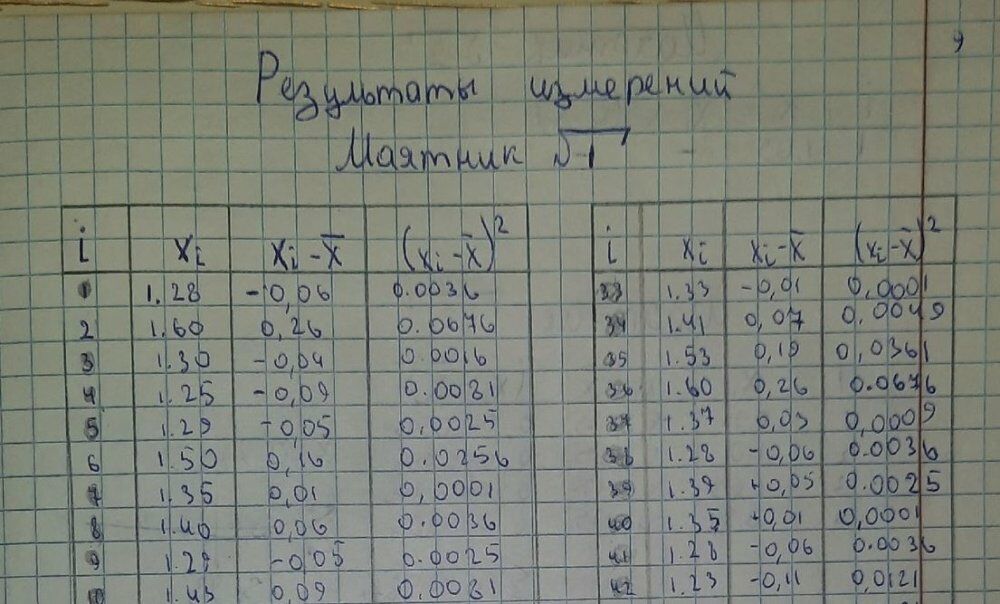 Результаты измерений
Маятник √1
i xᵢ xᵢ-x̄ (xᵢ-x̄)² i xᵢ xᵢ-x̄ (xᵢ-x̄)²
1 1.28 -0,06 0.0036 33 1.33 -0,01 0,0001
2 1.60 0,26 0.0676 34 1.41 0,07 0,0049
3 1.30 -0,04 0.0016 35 1.53 0,19 0,0361
4 1.25 -0,09 0.0081 36 1.60 0,26 0.0676
5 1.29 -0,05 0,0025 37 1.37 0,03 0,0009
6 1.50 0,16 0.0256 38 1.28 -0,06 0.0036
7 1.35 0,01 0,0001 39 1.39 +0,05 0.0025
8 1.40 0,06 0.0036 40 1.35 +0,01 0,0001
9 1.29 -0,05 0.0025 41 1.28 -0,06 0.0036
10 1.43 0,09 0.0081 42 1.23 -0,11 0,0121